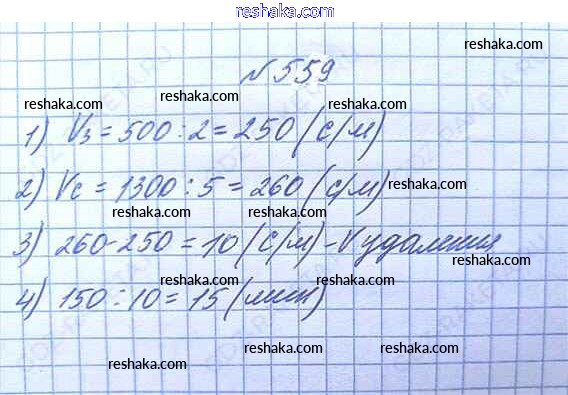 reshaka.com
N559
1) Vз = 500 : 2 = 250 (с/м)
2) Vс = 1300 : 5 = 260 (с/м)
3) 260 - 250 = 10 (с/м) - V удаления
4) 150 : 10 = 15 (мин)
reshaka.com
reshaka.com
reshaka.com
reshaka.com
reshaka.com
reshaka.com
reshaka.com
reshaka.com
reshaka.com
reshaka.com
reshaka.com
reshaka.com
reshaka.com